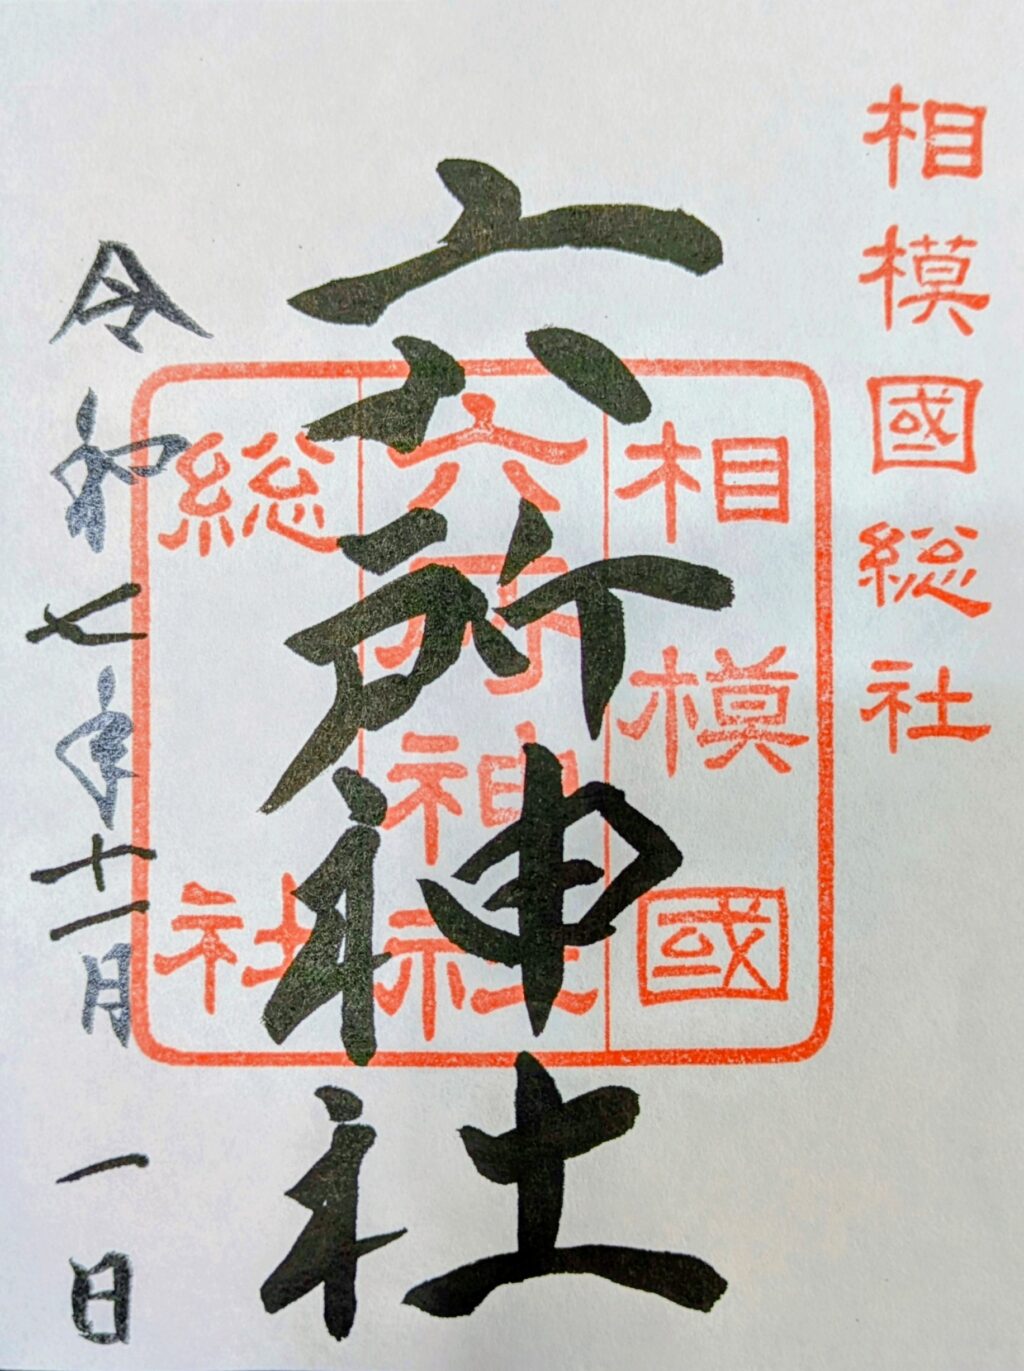 相模國総社
相模國
六所神社
総社
六所神社
令和七年十一月一日